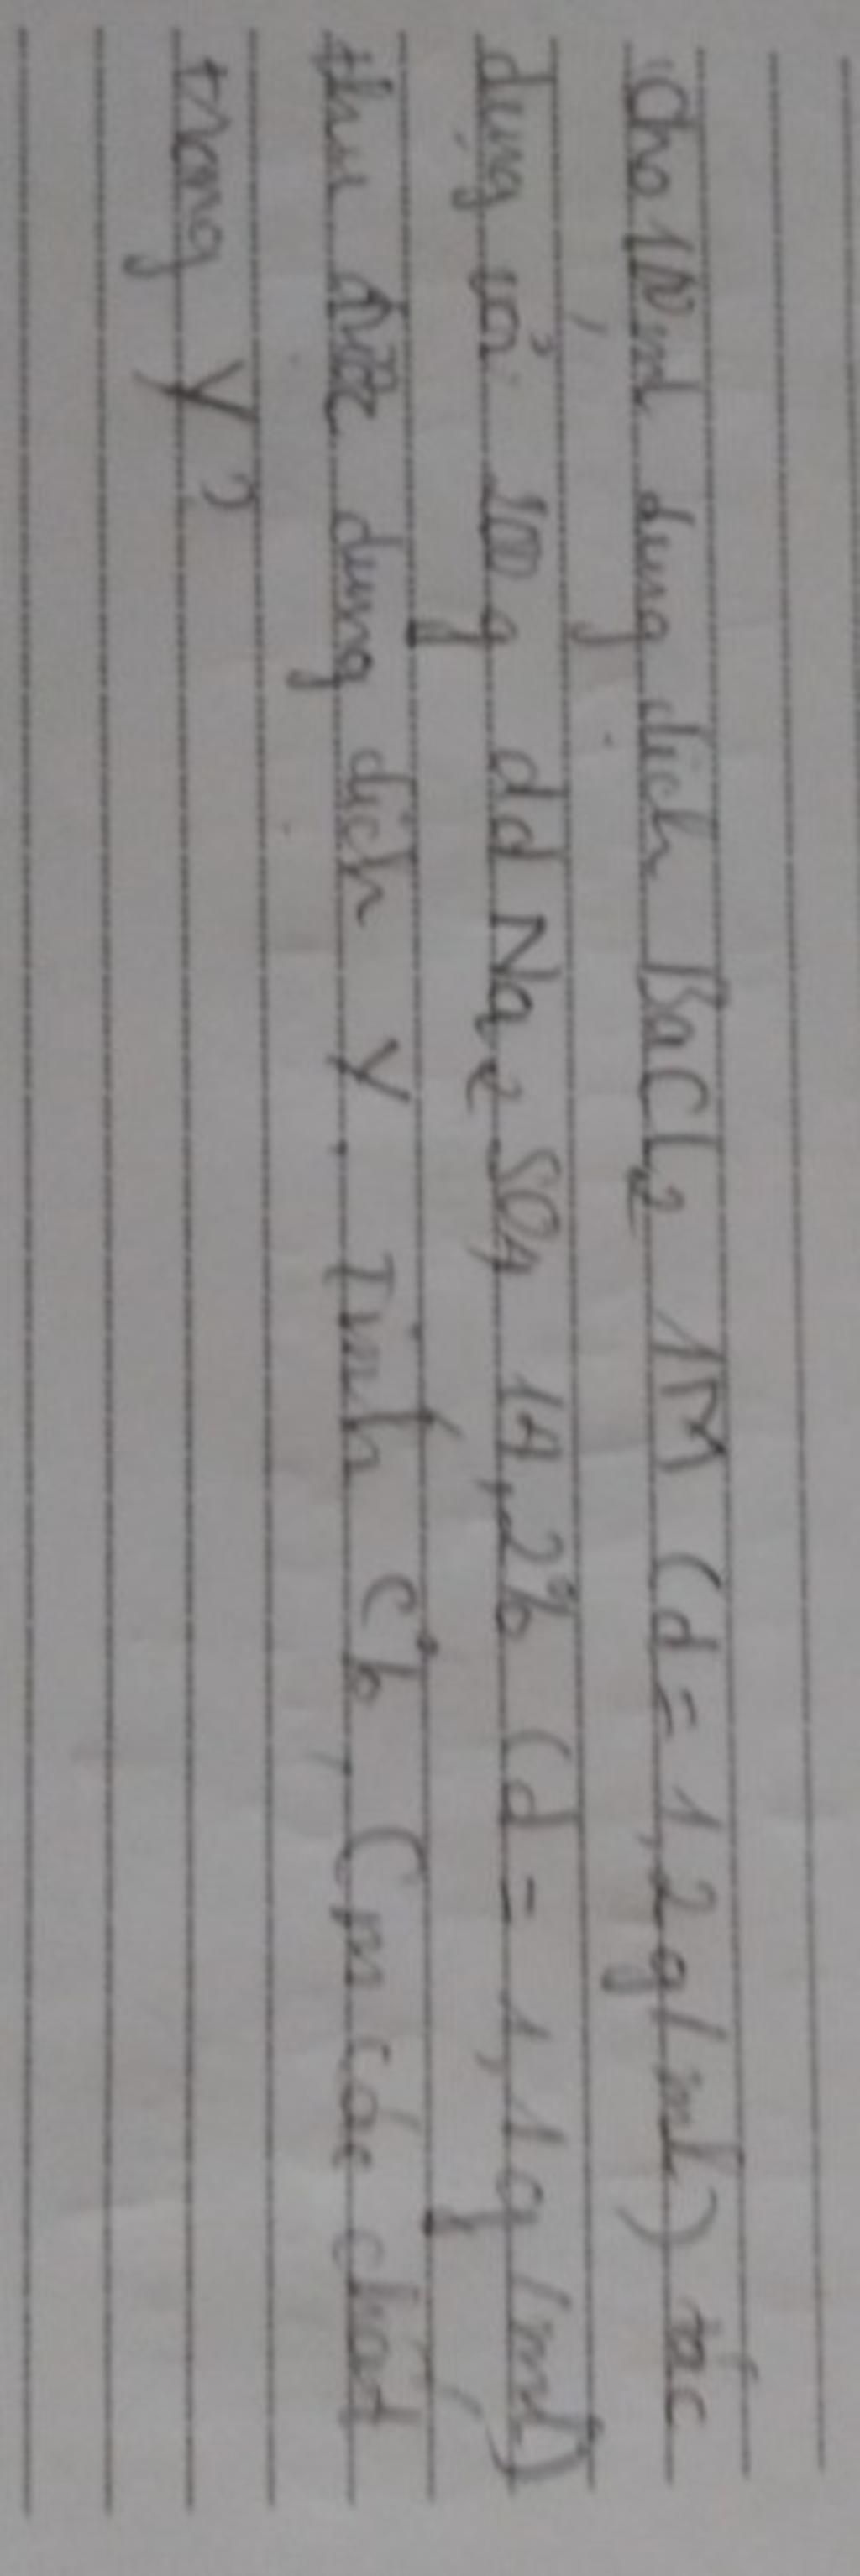 Cho 100ml dung dịch BaCl2 1M (d = 1,2g/ml) tác
dụng với 200g dd Na2SO4 14,2% (d = 1,1g/ml)
thu được dung dịch Y. Tính C%, CM các chất
trong Y?